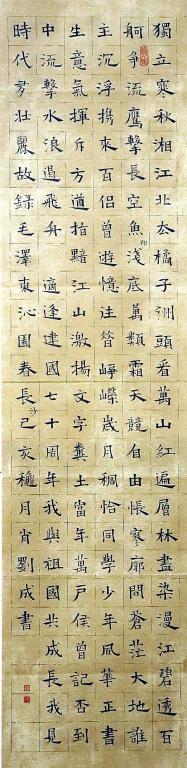 獨立寒秋湘江北去橘子洲頭看萬山紅遍層林盡染漫江碧透百
舸爭流鷹擊長空魚翔淺底萬類霜天競自由悵寥廓問蒼茫大地誰
主沉浮携來百侶曾遊憶往昔崢嶸歲月稠恰同學少年風華正書
生意氣揮斥方遒指點江山激揚文字糞土當年萬戶侯曾記否到
中流擊水浪遏飛舟 適逢建國七十周年我與祖國共成長我見
時代壯麗故錄毛澤東沁園春長沙己亥穐月宵劉成書